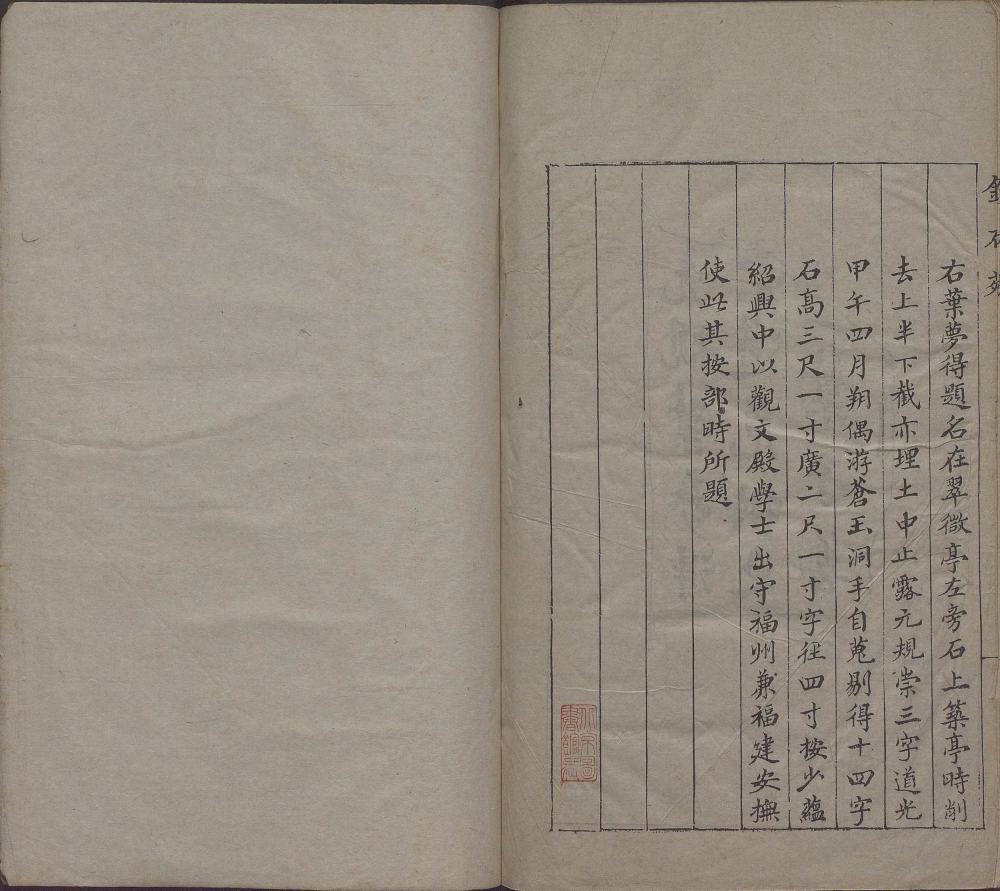 右葉夢得題名在翠微亭左旁石上築亭時削
去上半下截亦埋土中止露元規崇三字道光
甲午四月朔偶游蒼玉洞手自蒐剔得十四字
石高三尺一寸廣二尺一寸字徑四寸按少蘊
紹興中以觀文殿學士出守福州兼福建安撫
使此其按部時所題